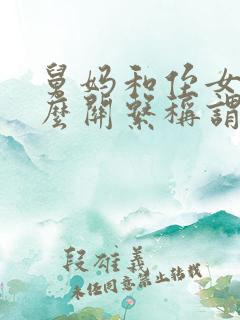 舅妈和侄女
麼關繫稱謂
段雄義
未经同意禁止转载